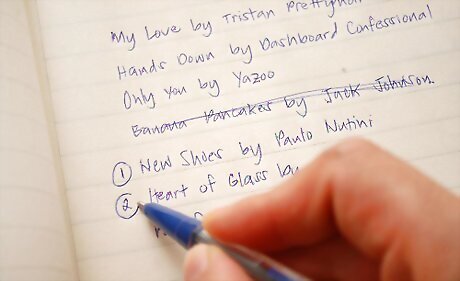 My Love by Tristan
Hands Down by Dashboard Confessional
Only You by Yazoo
Banana Pancakes by Jack Johnson.
1 New Shoes by Paulo Nutini
2 Heart of Glass by